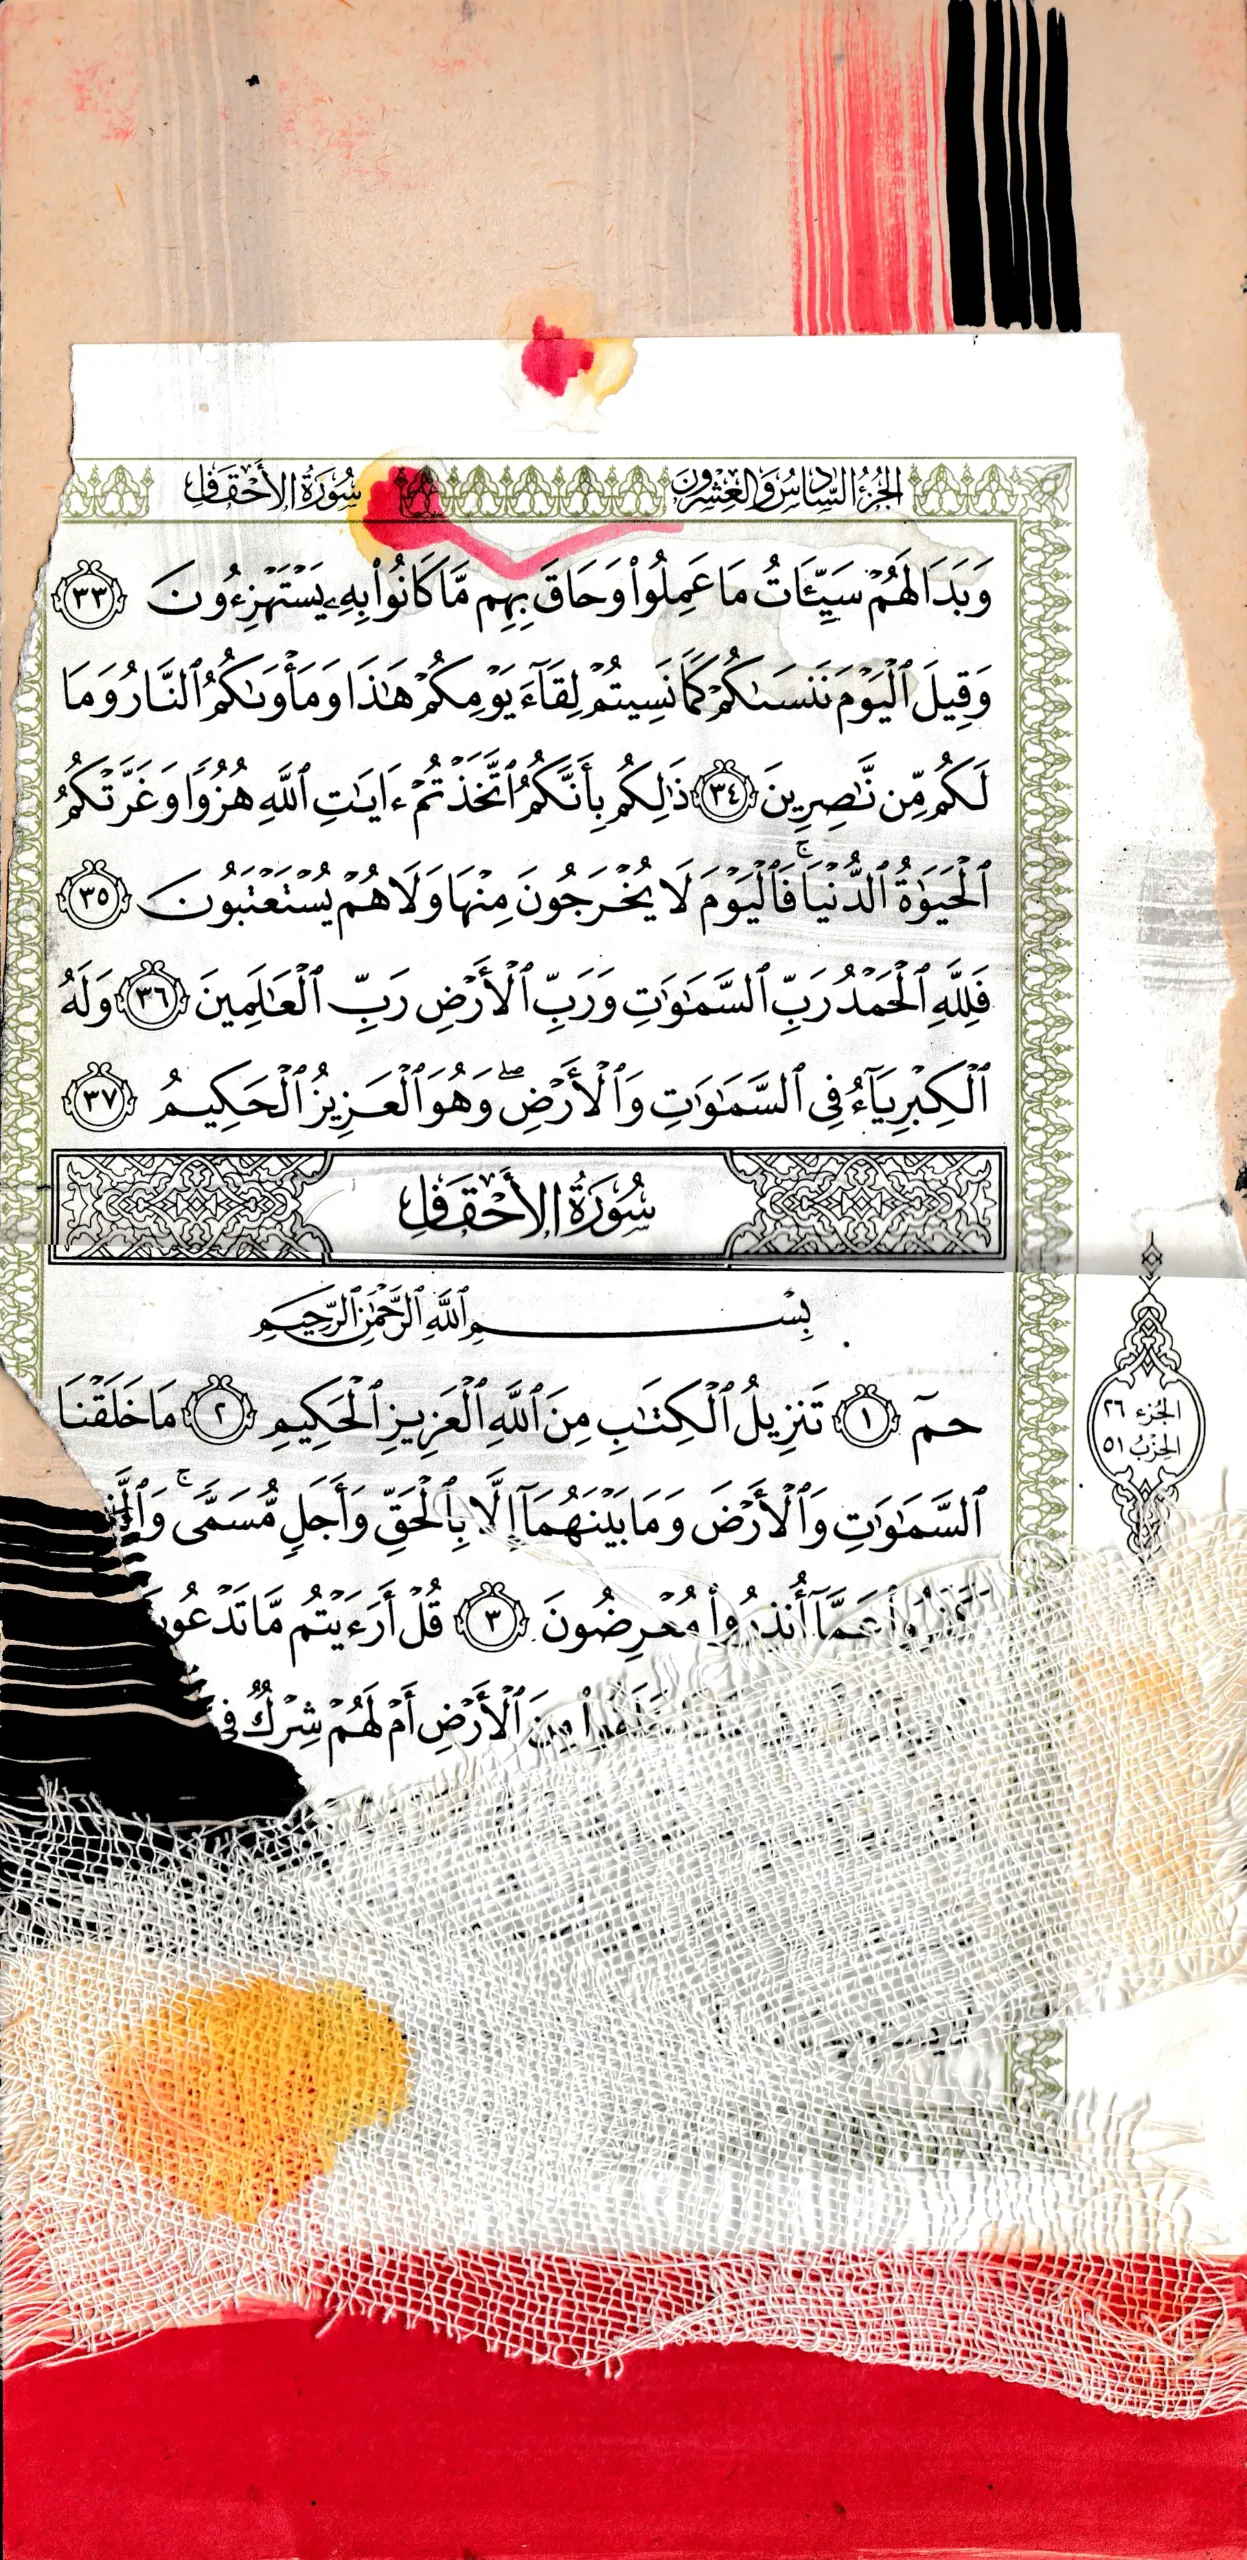 الجزء السادس والعشرون
سورة الأحقاف
وَبَدَا لَهُمْ سَيِّـَٔاتُ مَا عَمِلُوا۟ وَحَاقَ بِهِم مَّا كَانُوا۟ بِهِۦ يَسْتَهْزِءُونَ ٣٣
وَقِيلَ ٱلْيَوْمَ نَنسَىٰكُمْ كَمَا نَسِيتُمْ لِقَآءَ يَوْمِكُمْ هَٰذَا وَمَأْوَىٰكُمُ ٱلنَّارُ وَمَا
لَكُم مِّن نَّٰصِرِينَ ٣٤ ذَٰلِكُم بِأَنَّكُمُ ٱتَّخَذْتُمْ ءَايَٰتِ ٱللَّهِ هُزُوًا وَغَرَّتْكُمُ
ٱلْحَيَوٰةُ ٱلدُّنْيَا ۚ فَٱلْيَوْمَ لَا يُخْرَجُونَ مِنْهَا وَلَا هُمْ يُسْتَعْتَبُونَ ٣٥
فَلِلَّهِ ٱلْحَمْدُ رَبِّ ٱلسَّمَٰوَٰتِ وَرَبِّ ٱلْأَرْضِ رَبِّ ٱلْعَٰلَمِينَ ٣٦ وَلَهُ
ٱلْكِبْرِيَآءُ فِى ٱلسَّمَٰوَٰتِ وَٱلْأَرْضِ ۖ وَهُوَ ٱلْعَزِيزُ ٱلْحَكِيمُ ٣٧
سُورَةُ الأَحْقَافِ
بِسْمِ ٱللَّهِ ٱلرَّحْمَٰنِ ٱلرَّحِيمِ
حمٓ ١ تَنزِيلُ ٱلْكِتَٰبِ مِنَ ٱللَّهِ ٱلْعَزِيزِ ٱلْحَكِيمِ ٢ مَا خَلَقْنَا
ٱلسَّمَٰوَٰتِ وَٱلْأَرْضَ وَمَا بَيْنَهُمَآ إِلَّا بِٱلْحَقِّ وَأَجَلٍ مُّسَمًّى ۚ
عَمَّآ أُنذِرُوا۟ مُعْرِضُونَ ٣ قُلْ أَرَءَيْتُم مَّا تَدْعُونَ
مِنَ ٱلْأَرْضِ أَمْ لَهُمْ شِرْكٌ فِى
الجزء ٢٦
الحزب ٥١